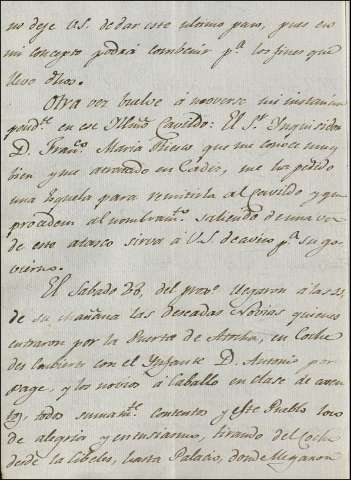 no deje V.S. de dar este ultimo paso, pues en
mi concepto podrá combenir pª. los fines que
llevo dhos.
Otra vez buelve á moverse mi instancia
pend.te en ese Illmo. Cavildo: El Sr. Inquisidor
D. Franco. Maria Riesco que me conoce muy
bien y me á tratado en Cadiz, me ha pedido
una Esquela para remitirla al Cavildo y que
procedan al nombram.to saliendo de una vez
de este atasco sirva á V.S. de aviso pª. su go-
vierno.
El Sabado 28, del pro. llegaron á las
de su mañana las deseadas Novias quienes
entraron por la Puerta de Atocha, en Coche
descubierto con el Ynfante D. Antonio por
page, y los novios á Caballo en clase de
todos sumam.te contentos y este Pueblo loco
de alegria y entusiasmo, tirando del Coche
desde la Cibeles, hasta Palacio, donde llegaron